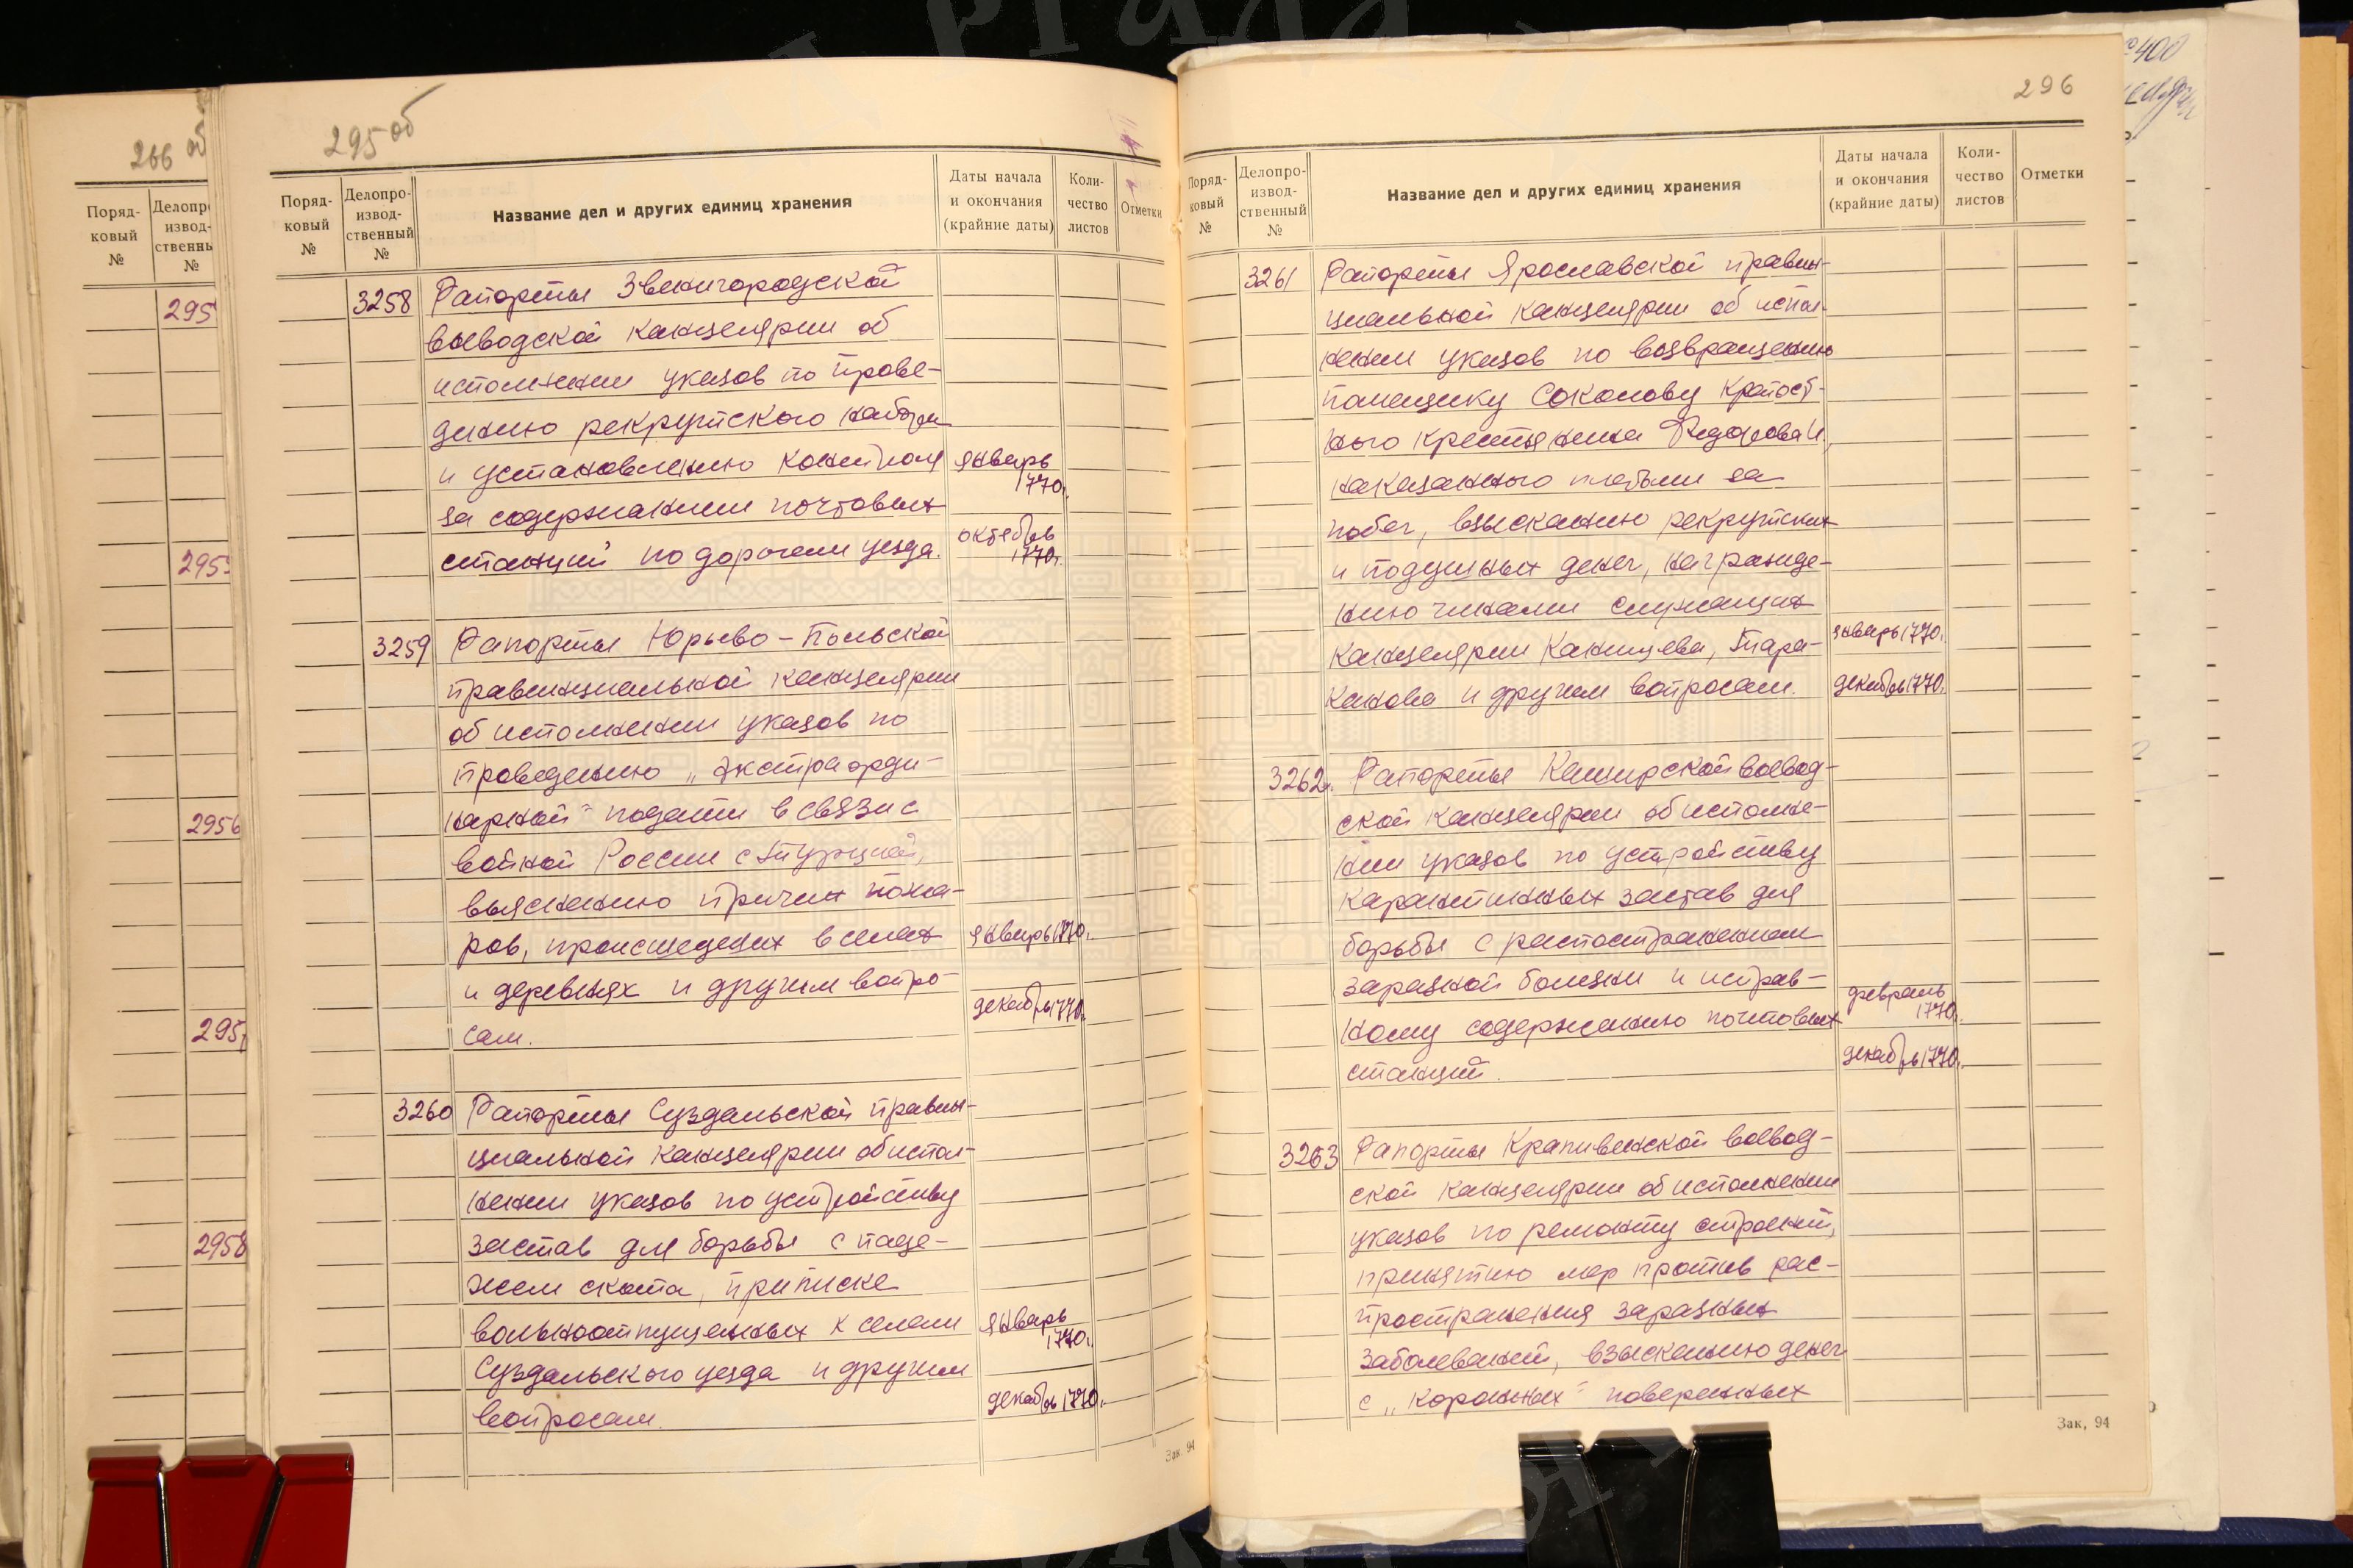 266 об
Поряд-
ковый
№
295
295
2956
295
2958
295 об
Поряд-
ковый
№
Делопро-
извод-
ственный
№
Название дел и других единиц хранения
Даты начала
и окончания
(крайние даты)
Коли-
чество
листов
Отметки
3258 Рапорты Звенигородской
воеводской канцелярии об
исполнении указов по прове-
дению рекрутского набора
и установлению контроля январь
1770г.
за содержанием почтовых
станций по дорогам уезда. октябрь
1770г.
3259 Рапорты Юрьево-Польской
провинциальной канцелярии
об исполнении указов по
проведению „экстраорди-
нарной" подати в связи с
войной России с Турцией,
выяснению причин пожа-
ров, происшедших в селах январь 1770г.
и деревнях и другим вопро-
сам. декабрь 1770г.
3260 Рапорты Суздальской провин-
циальной канцелярии об испол-
нении указов по устройству
застав для борьбы с паде-
жем скота, приписке
вольноотпущенных к селам январь
1770г.
Суздальского уезда и другим
вопросам. декабрь 1770г.
Зак. 94
296
Поряд-
ковый
№
Делопро-
извод-
ственный
№
Название дел и других единиц хранения
Даты начала
и окончания
(крайние даты)
Коли-
чество
листов
Отметки
3261 Рапорты Ярославской провин-
циальной канцелярии об испол-
нении указов по возвращению
помещику Соколову крепост-
ного крестьянина Федорова И.,
наказанного плетьми за
побег, взысканию рекрутских
и подушных денег, награжде-
нию чинами служащих
канцелярии Канищева, Тара- январь 1770г.
канова и другим вопросам. декабрь 1770г.
3262. Рапорты Каширской воевод-
ской канцелярии об исполне-
нии указов по устройству
карантинных застав для
борьбы с распостранением
заразной болезни и исправ-
ному содержанию почтовых февраль
1770г.
станций. декабрь 1770г.
3263 Рапорты Крапивенской воевод-
ской канцелярии об исполнении
указов по ремонту строений,
принятию мер против рас-
пространения заразных
заболеваний, взысканию денег
с „коронных" поверенных
Зак, 94